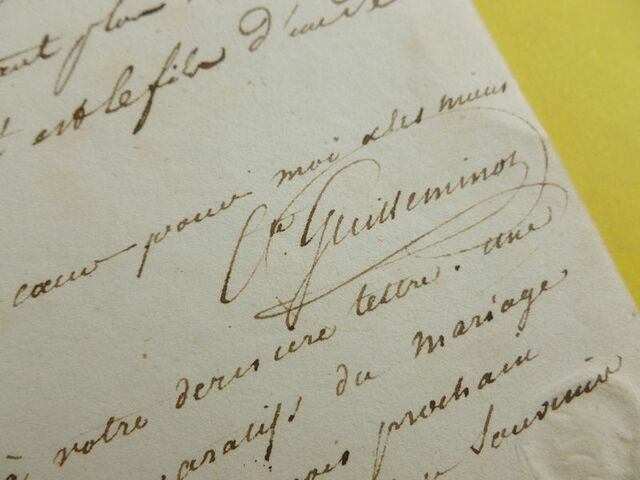 ant plus
est le fils d'un de
cœur pour moi & les miens
Cte Guilleminot
à votre derniere lettre. une
paratifs du mariage
ois prochain
souvenir